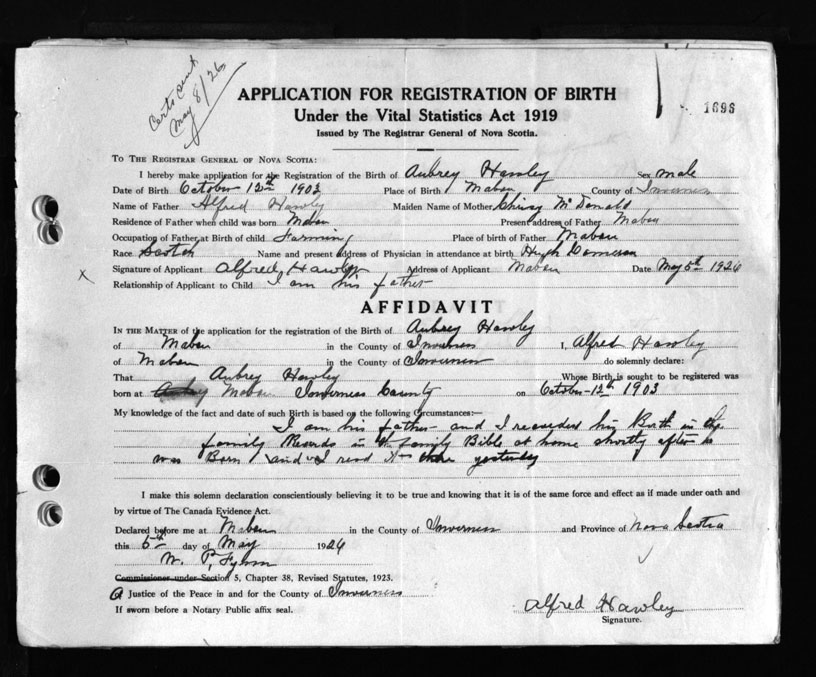 Certs sent
May 8/26
APPLICATION FOR REGISTRATION OF BIRTH
Under the Vital Statistics Act 1919
Issued by The Registrar General of Nova Scotia.
1696
TO THE REGISTRAR GENERAL OF NOVA SCOTIA:
I hereby make application for the Registration of the Birth of Aubrey Hawley Sex male
Date of Birth October 12th 1903 Place of Birth Mabou County of Inverness
Name of Father Alfred Hawley Maiden Name of Mother Chrissy McDonald
Residence of Father when child was born Mabou Present address of Father Mabou
Occupation of Father at Birth of child Farming Place of birth of Father Mabou
Race Scotch Name and present address of Physician in attendance at birth Hugh
x
Signature of Applicant Alfred Hawley Address of Applicant Mabou Date May 5th 1926
Relationship of Applicant to Child I am his father
AFFIDAVIT
IN THE MATTER of the application for the registration of the Birth of Aubrey Hawley
of Mabou in the County of Inverness I, Alfred Hawley
of Mabou in the County of Inverness do solemnly declare:
That Aubrey Hawley Whose Birth is sought to be registered was
born at Mabou Inverness County on October 12th 1903
My knowledge of the fact and date of such Birth is based on the following Circumstances:—
I am his father and I recorded his Birth in the
family Records in the family Bible at home shortly after he
was Born and I read it there yesterday
I make this solemn declaration conscientiously believing it to be true and knowing that it is of the same force and effect as if made under oath and
by virtue of The Canada Evidence Act.
Declared before me at Mabou in the County of Inverness and Province of Nova Scotia
this 5th day of May 1926
W. P.
Commissioner under Section 5, Chapter 38, Revised Statutes, 1923.
A Justice of the Peace in and for the County of Inverness
If sworn before a Notary Public affix seal.
Alfred Hawley
Signature.